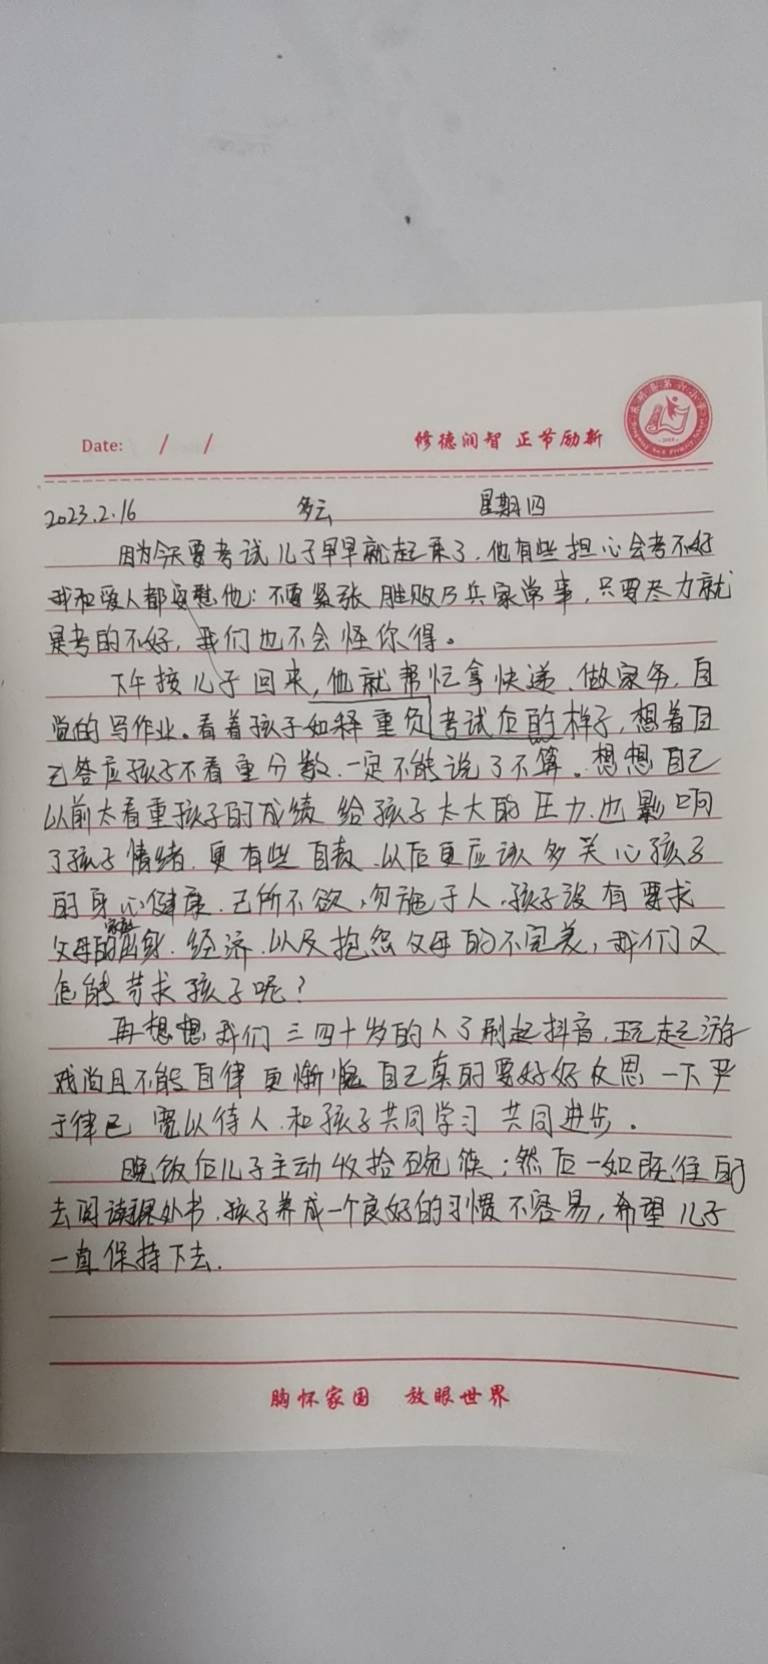 Date: / /
修德润智 正节励新
2023.2.16 多云 星期四
因为今天要考试儿子早早就起来了，他有些担心会考不好
我和爱人都安慰他：不要紧张 胜败乃兵家常事，只要尽力就
是考的不好，我们也不会怪你得。
下午接儿子回来，他就帮忙拿快递、做家务，自
觉的写作业。看着孩子如释重负考试后的样子，想着自
己答应孩子不看重分数，一定不能说了不算。想想自己
以前太看重孩子的成绩 给孩子太大的压力，也影响
了孩子情绪，更有些自责，以后更应该多关心孩子
的身心健康，己所不欲，勿施于人，孩子没有要求
父母的家庭出身、经济、以及抱怨父母的不完美，我们又
怎能苛求孩子呢？
再想想我们三四十岁的人了刷起抖音，玩起游
戏尚且不能自律 更惭愧 自己真的要好好反思一下 严
于律己 宽以待人 和孩子共同学习 共同进步。
晚饭后儿子主动收拾碗筷；然后一如既往的
去阅读课外书，孩子养成一个良好的习惯不容易，希望儿子
一直保持下去.
胸怀家国 放眼世界